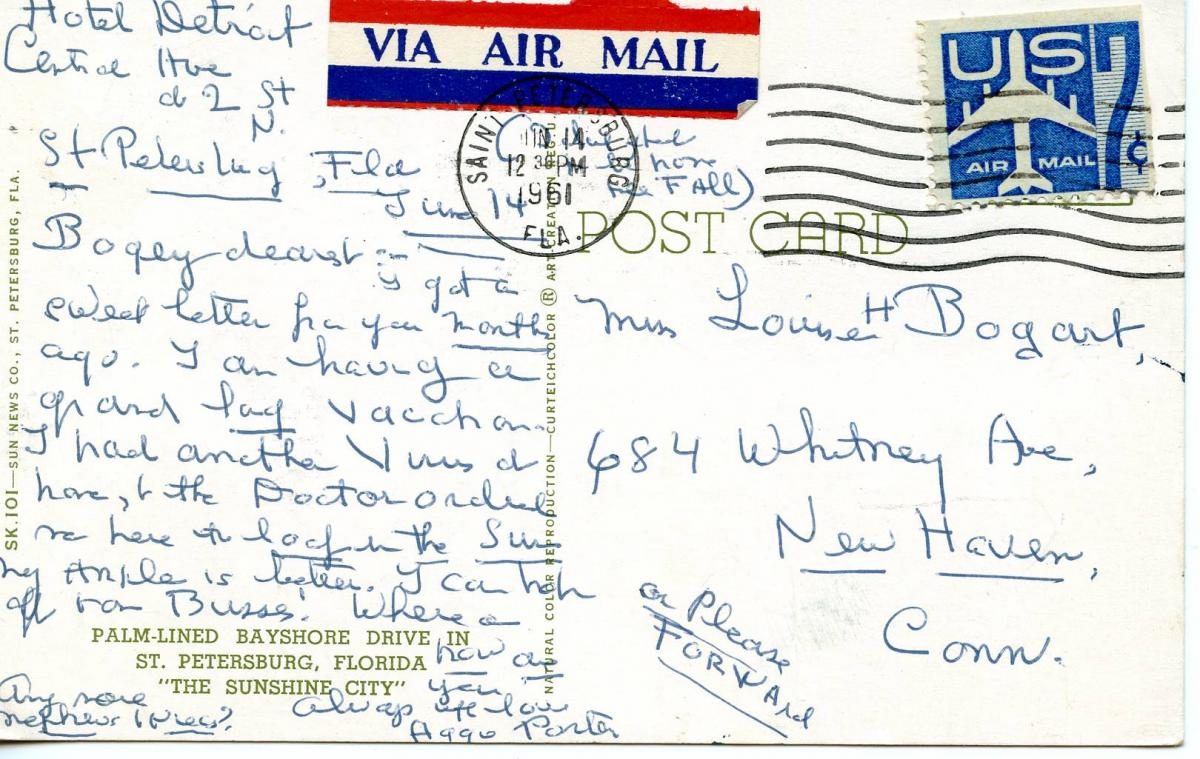 Hotel Detroit
Central Ave
& 2 St
N.
St Petersburg, Fla
June 14
Bogey dearest :-
I got a
sweet letter from you months
ago. I am having a
grand long vacation.
I had another Virus at
home, & the Doctor ordered
me here to loaf in the Sun
My Ankle is better. I can
off Busses. Where
how are
you
Any more
nephews
Always
Porter
PALM-LINED BAYSHORE DRIVE IN
ST. PETERSBURG, FLORIDA
"THE SUNSHINE CITY"
SK.101—SUN NEWS CO., ST. PETERSBURG, FLA.
NATURAL COLOR REPRODUCTION—CURTEICHCOLOR ® ART-CREATION
VIA AIR MAIL
SAINT PETERSBURG
JUN 14
12 30 PM
1961
FLA.
home
Fall)
US
7¢
AIR MAIL
POST CARD
Miss Louise H Bogart,
684 Whitney Ave,
New Haven,
Conn.
or Please
FORWARD